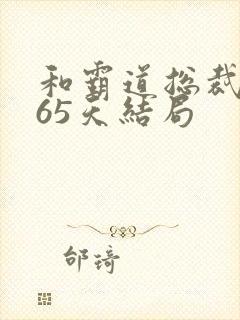 和霸道总裁
65天结局
邰琦